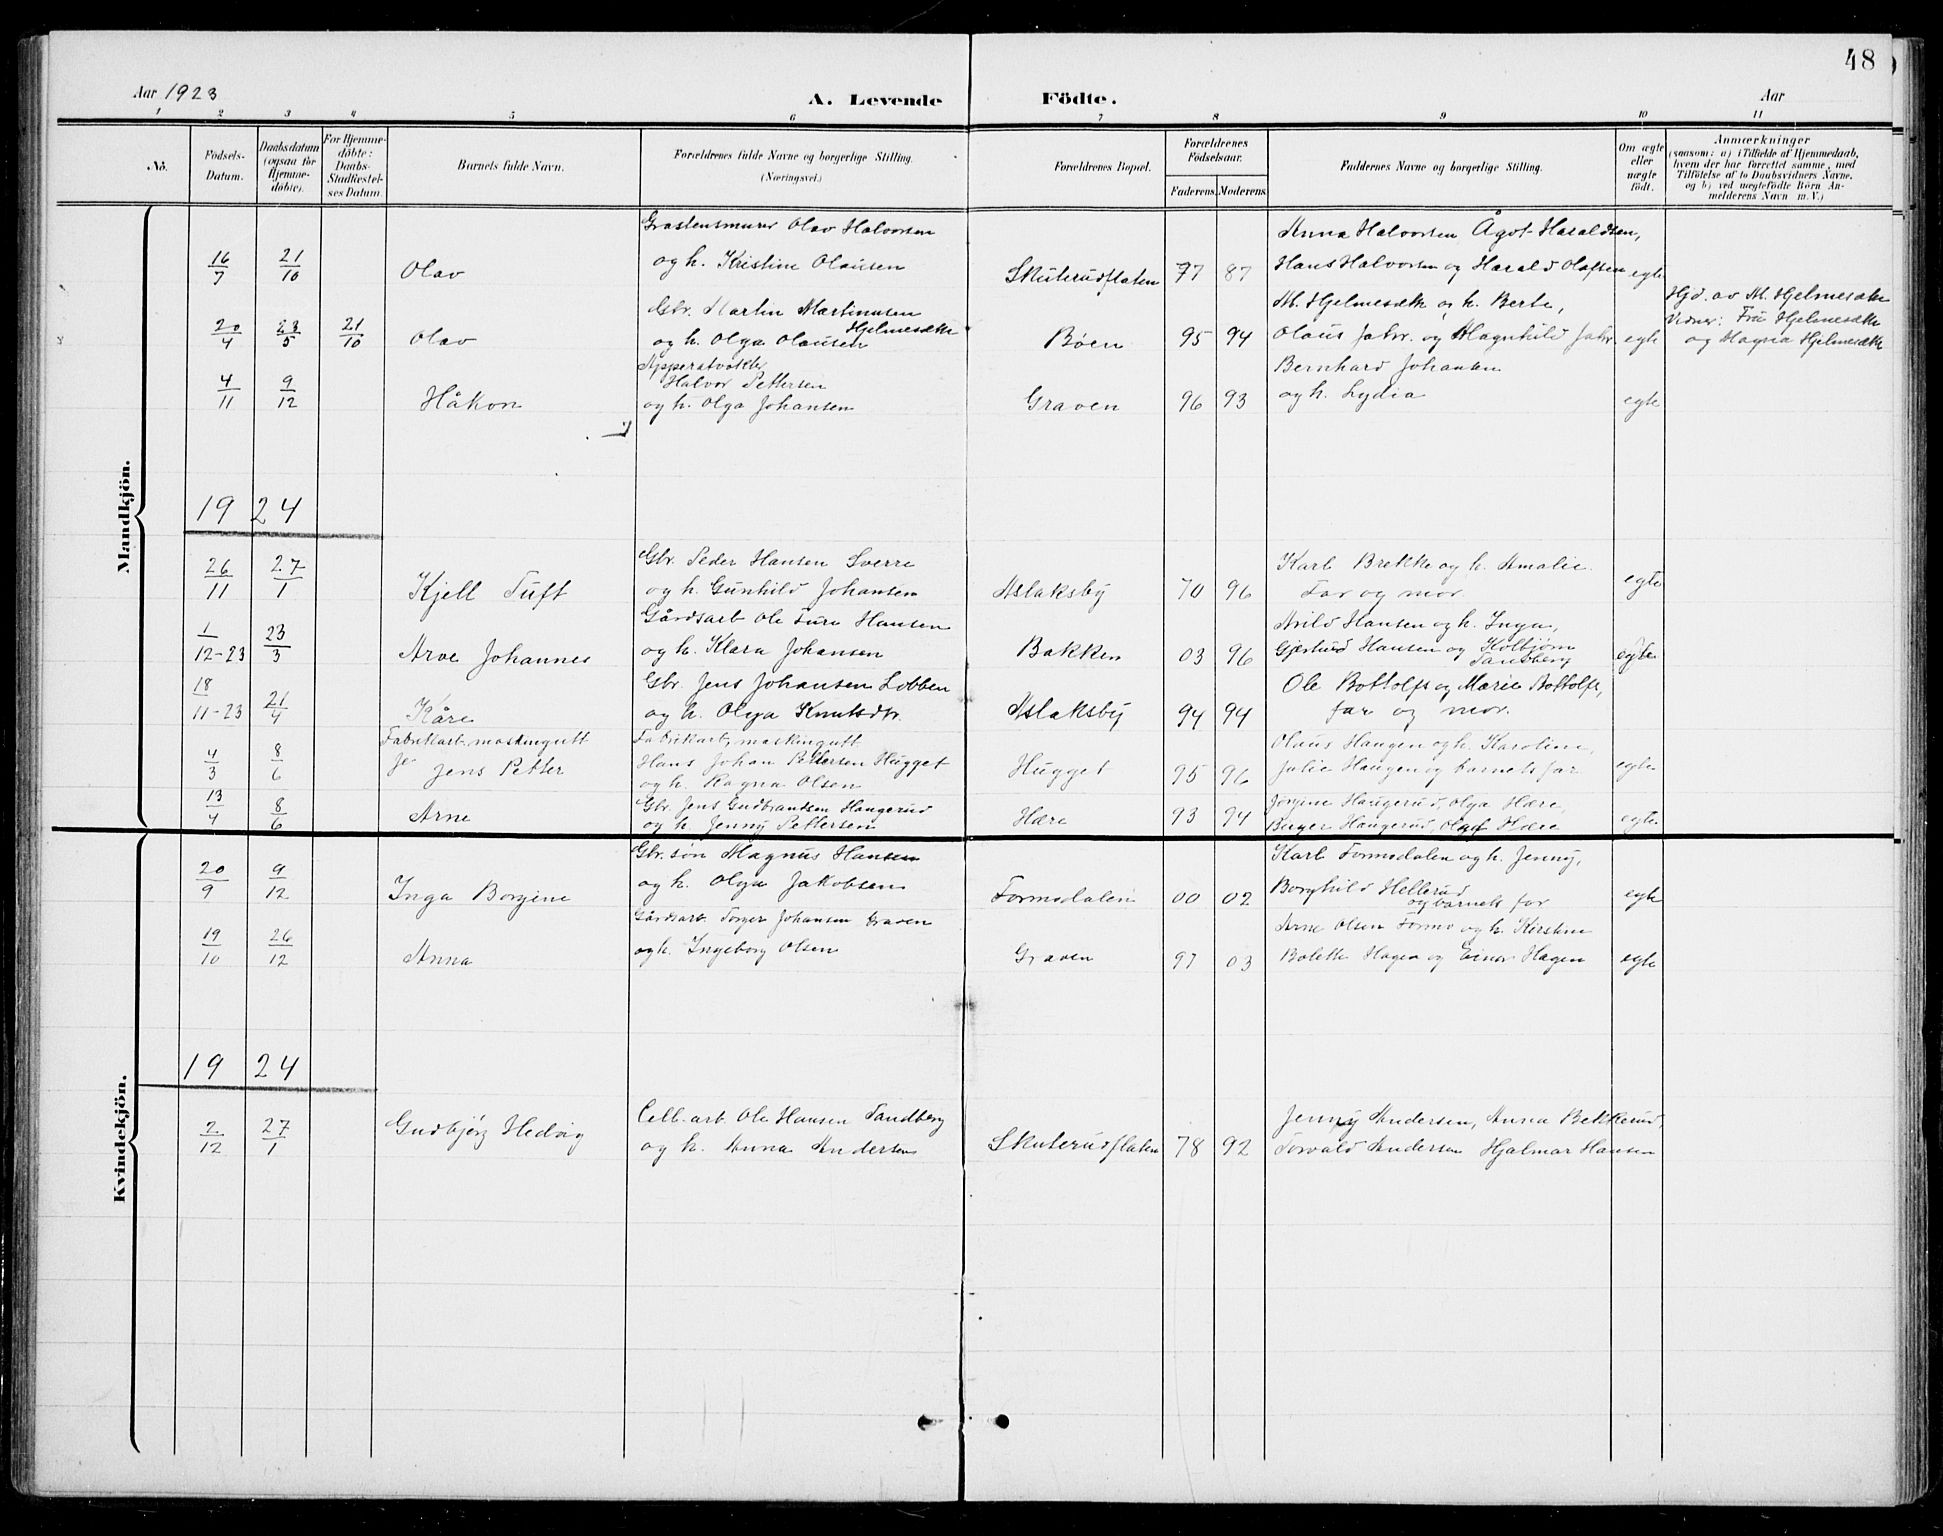 48
Aar 1923
A. Levende Födte.
Aar
1 2 3 4 5 6 7 8 9 10 11
No.
Födsels-Datum.
Daabsdatum (ogsaa for Hjemmedöbte).
For Hjemmedöbte: Daabs-Stadfæstelses Datum
Barnets fulde Navn.
Forældrenes fulde Navne og borgerlige Stilling. (Næringsvei.)
Forældrenes Bopæl.
Forældrenes Födselsaar.
Faderens. Moderens.
Faddernes Navne og borgerlige Stilling.
Om ægte eller uægte födt.
Anmærkninger
(saasom: a) i Tilfælde af Hjemmedaab,
hvem der har forrettet samme, med
Tilföielse af to Daabsvidners Navne,
og b) ved uegtefödte Börn Anmelderens Navn m. V.)
Mandkjön.
Gråstensmurer Olav Halvorsen Anna Halvorsen Ågot Haraldsen,
16/7 21/10 Olav og h. Kristine Olausen Skuterudflaten 77 87 Hans Halvorsen og Harald Olafsen egte
Gbr. Martin Martinusen M. Hjelmesæth og h. Berte, Hjd. av M. Hjelmesæth
Hjelmesæth Vidner: Fru Hjelmesæth
20/4 23/5 21/10 Olav og h. Olga Olausen Bøen 95 94 Olaus Jahr. og Magnhild Jahr. egte og Magna Hjelmesæth
Apparatvokter
Halvor Pettersen Bernhard Johansen
4/11 9/12 Håkon og h. Olga Johansen Graven 96 93 og h. Lydia egte
1924
Gbr. Peder Hansen Sverre Karl Brekke og h. Amalie.
26/11 27/1 Kjell Tuft og h. Gunhild Johansen Aslaksby 70 96 Far og mor. egte
Gårdsarb Ole Ture Hansen Arild Hansen og h. Inga,
1/12-23 23/3 Arve Johannes og h. Klara Johansen Bakken 03 96 Gjertrud Hansen og Kolbjørn Tandberg egte
Gbr. Jens Johansen Lobben Ole Bottolfs og Marie Bottolfs,
18/11-23 21/4 Kåre og h. Olga Knutsdtr. Aslaksby 94 94 far og mor.
Fabrikarb. maskingutt Fabrikarb. maskingutt Olaus Haugen og h. Karoline,
4/3 8/6 Je Jens Petter Hans Johan Pettersen Hugget Hugget 95 96 Julie Haugen og barnets far egte
og h. Ragna Olsen
13/4 8/6 Arne Gbr. Jens Gudbrandsen Haugerud Hære 93 94 Jørgine Haugerud, Olga Hære, egte
og h. Jenny Pettersen Birger Haugerud, Olaf Hære
Kvindekjön.
Gbr. søn Magnus Hansen Karl Formodalen og h. Jenny,
20/9 9/12 Inga Borgine og h. Olga Jakobsen Formodalen 00 02 Borghild Hellerud og barnets far egte
Gårdsarb. Torger Johansen Graven Arne Olsen Formo og h. Kirstine
19/10 26/12 Anna og h. Ingeborg Olsen Graven 97 03 Bolette Hagen og Einar Hagen egte
1924
Cell. arb. Ole Hansen Tandberg Jenny Andersen, Anna Bekkerud,
2/12 27/1 Gudbjørg Hedvig og h. Anna Andersen Skuterudflaten 78 92 Torvald Andersen Hjalmar Hansen